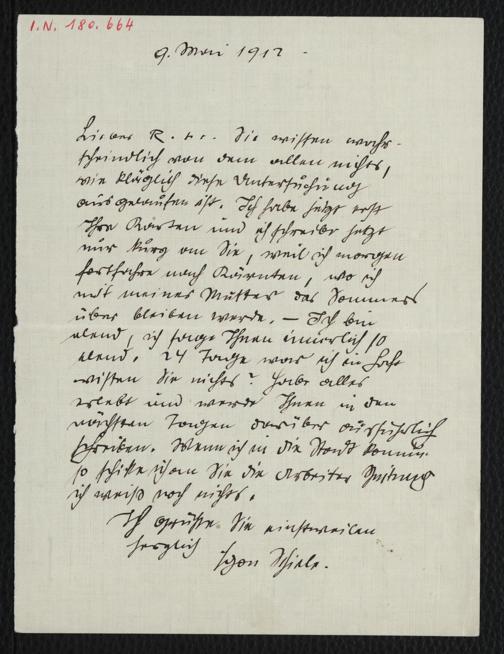 I.N. 180.664
9. Mai 1912 -
Lieber R. R. Sie wissen wahr-
scheindlich von dem allen nichts,
wie kläglich diese Untersuchung
ausgelaufen ist. Ich habe jetzt erst
Ihre Karten und ich schreibe jetzt
nur kurz an Sie, weil ich morgen
fortfahre nach Kärnten, wo ich
mit meiner Mutter das Sommers
über bleiben werde. — Ich bin
elend, ich sage Ihnen innerlich so
elend. 24 Tage war ich in Haft
wissen Sie nichts? habe alles
erlebt und werde Ihnen in den
nächsten Tagen darüber ausführlich
schreiben. Wenn ich in die Stadt komme
so schike ich an Sie die Arbeiter Zeitung
ich weiß noch nichts.
Ich grüße Sie einstweilen
herzlich
Egon Schiele.